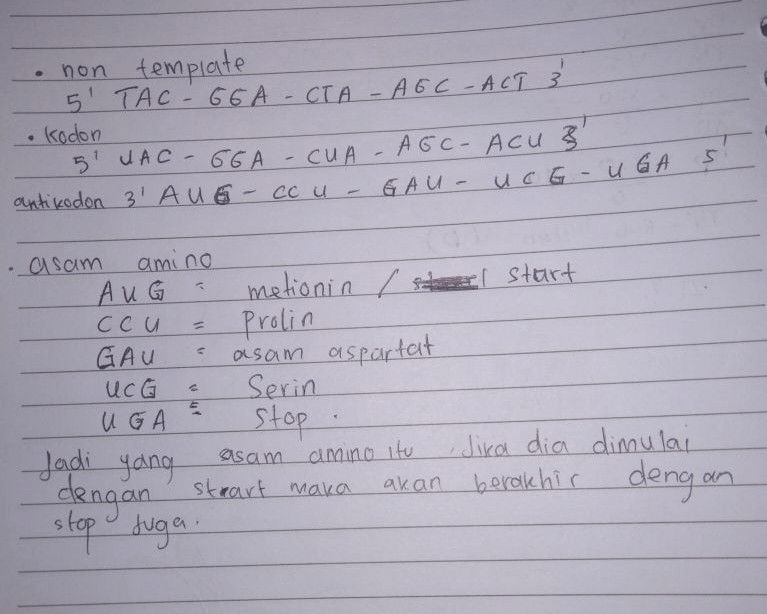 • non template
5' TAC - GGA - CTA - AGC - ACT 3'
• Kodon
5' UAC - GGA - CUA - AGC - ACU 3'
antikodon 3' AUG - CCU - GAU - UCG - UGA 5'
• asam amino
AUG = metionin / start
CCU = Prolin
GAU = asam aspartat
UCG = Serin
UGA = Stop.
Jadi yang asam amino itu, Jika dia dimulai
dengan strart maka akan berakhir dengan
stop juga.